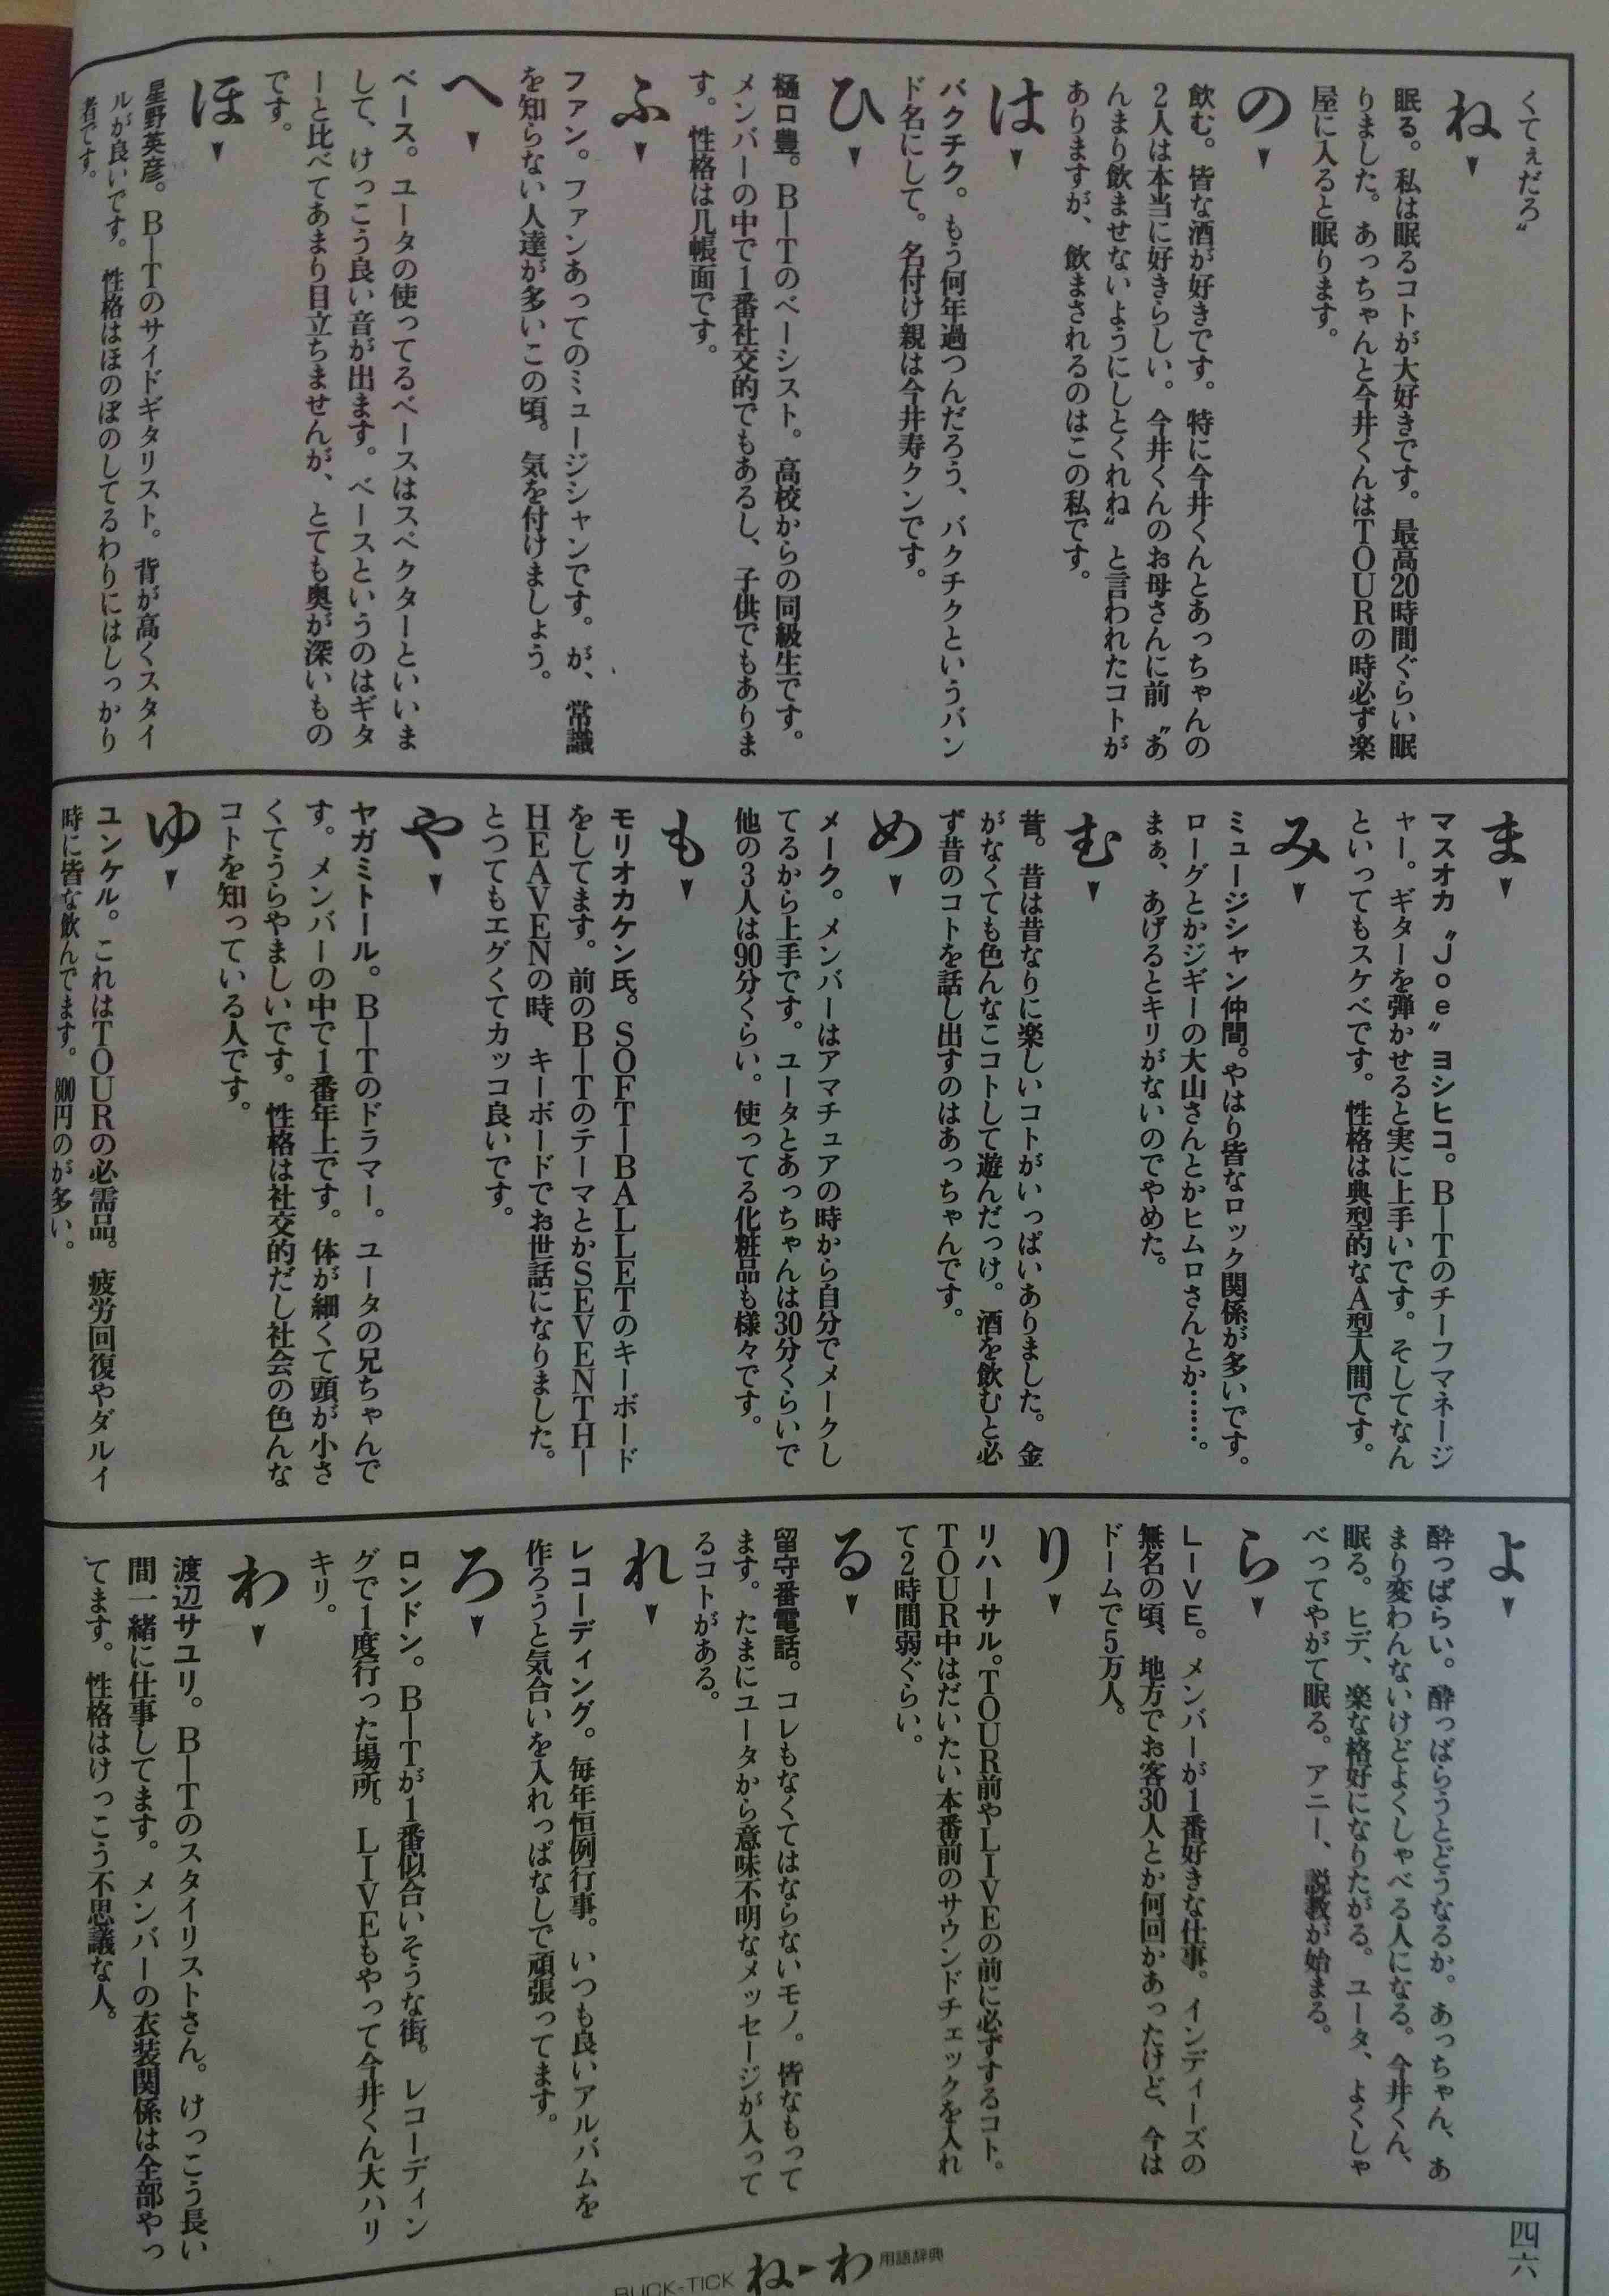 くてぇだろ〟
ね▼
眠る。私は眠るコトが大好きです。最高20時間ぐらい眠
りました。あっちゃんと今井くんはTOURの時必ず楽
屋に入ると眠ります。
の▼
飲む。皆な酒が好きです。特に今井くんとあっちゃんの
2人は本当に好きらしい。今井くんのお母さんに前〝あ
んまり飲ませないようにしとくれね〟と言われたコトが
ありますが、飲まされるのはこの私です。
は▼
バクチク。もう何年過つんだろう、バクチクというバン
ド名にして。名付け親は今井寿クンです。
ひ▼
樋口豊。B―Tのベーシスト。高校からの同級生です。
メンバーの中で1番社交的でもあるし、子供でもありま
す。性格は几帳面です。
ふ▼
ファン。ファンあってのミュージシャンです。が、常識
を知らない人達が多いこの頃。気を付けましょう。
へ▼
ベース。ユータの使ってるベースはスペクターといいま
して、けっこう良い音が出ます。ベースというのはギタ
ーと比べてあまり目立ちませんが、とても奥が深いもの
です。
ほ▼
星野英彦。B―Tのサイドギタリスト。背が高くスタイ
ルが良いです。性格はほのぼのしてるわりにはしっかり
者です。
ま▼
マスオカ〝Joe〟ヨシヒコ。B―Tのチーフマネージ
ャー。ギターを弾かせると実に上手いです。そしてなん
といってもスケベです。性格は典型的なA型人間です。
み▼
ミュージシャン仲間。やはり皆なロック関係が多いです。
ローグとかジギーの大山さんとかヒムロさんとか……。
まぁ、あげるとキリがないのでやめた。
む▼
昔。昔は昔なりに楽しいコトがいっぱいありました。金
がなくても色んなこコトして遊んだっけ。酒を飲むと必
ず昔のコトを話し出すのはあっちゃんです。
め▼
メーク。メンバーはアマチュアの時から自分でメークし
てるから上手です。ユータとあっちゃんは30分くらいで
他の3人は90分くらい。使ってる化粧品も様々です。
も▼
モリオカケン氏。SOFT―BALLETのキーボード
をしてます。前のB―TのテーマとかSEVENTH―
HEAVENの時、キーボードでお世話になりました。
とつてもエグくてカッコ良いです。
や▼
ヤガミトール。B―Tのドラマー。ユータの兄ちゃんで
す。メンバーの中で1番年上です。体が細くて頭が小さ
くてうらやましいです。性格は社交的だし社会の色んな
コトを知っている人です。
ゆ▼
ユンケル。これはTOURの必需品。疲労回復やダルイ
時に皆な飲んでます。800円のが多い。
よ▼
酔っぱらい。酔っぱらうとどうなるか。あっちゃん、あ
まり変わんないけどよくしゃべる人になる。今井くん、
眠る。ヒデ、楽な格好になりたがる。ユータ、よくしゃ
べってやがて眠る。アニー、説教が始まる。
ら▼
LIVE。メンバーが1番好きな仕事。インディーズの
無名の頃、地方でお客30人とか何回かあったけど、今は
ドームで5万人。
り▼
リハーサル。TOUR前やLIVEの前に必ずするコト。
TOUR中はだいたい本番前のサウンドチェックを入れ
て2時間弱ぐらい。
る▼
留守番電話。コレもなくてはならないモノ。皆なもって
ます。たまにユータから意味不明なメッセージが入って
るコトがある。
れ▼
レコーディング。毎年恒例行事。いつも良いアルバムを
作ろうと気合いを入れっぱなしで頑張ってます。
ろ▼
ロンドン。B―Tが1番似合いそうな街。レコーディン
グで1度行った場所。LIVEもやって今井くん大ハリ
キリ。
わ▼
渡辺サユリ。B―Tのスタイリストさん。けっこう長い
間一緒に仕事してます。メンバーの衣装関係は全部やっ
てます。性格はけっこう不思議な人。
四六
BUCK-TICK ね▶わ 用語辞典